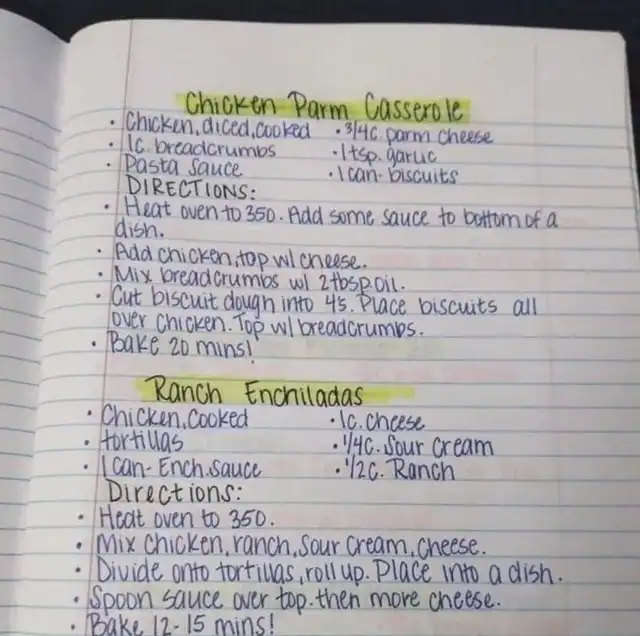 Chicken Parm Casserole
• Chicken, diced, cooked • 3/4c. parm cheese
• 1c. breadcrumbs • 1 tsp. garlic
• Pasta sauce • 1 can- biscuits
DIRECTIONS:
• Heat oven to 350. Add some sauce to bottom of a
dish.
• Add chicken, top w/ cheese.
• Mix breadcrumbs w/ 2 tbsp oil.
• Cut biscuit dough into 4s. Place biscuits all
over chicken. Top w/ breadcrumbs.
• Bake 20 mins!
Ranch Enchiladas
• Chicken, cooked • 1c. cheese
• tortillas • 1/4c. sour cream
• 1 can- Ench. sauce • 1/2c. Ranch
Directions:
• Heat oven to 350.
• Mix chicken, ranch, sour cream, cheese.
• Divide onto tortillas, roll up. Place into a dish.
• Spoon sauce over top. then more cheese.
• Bake 12-15 mins!